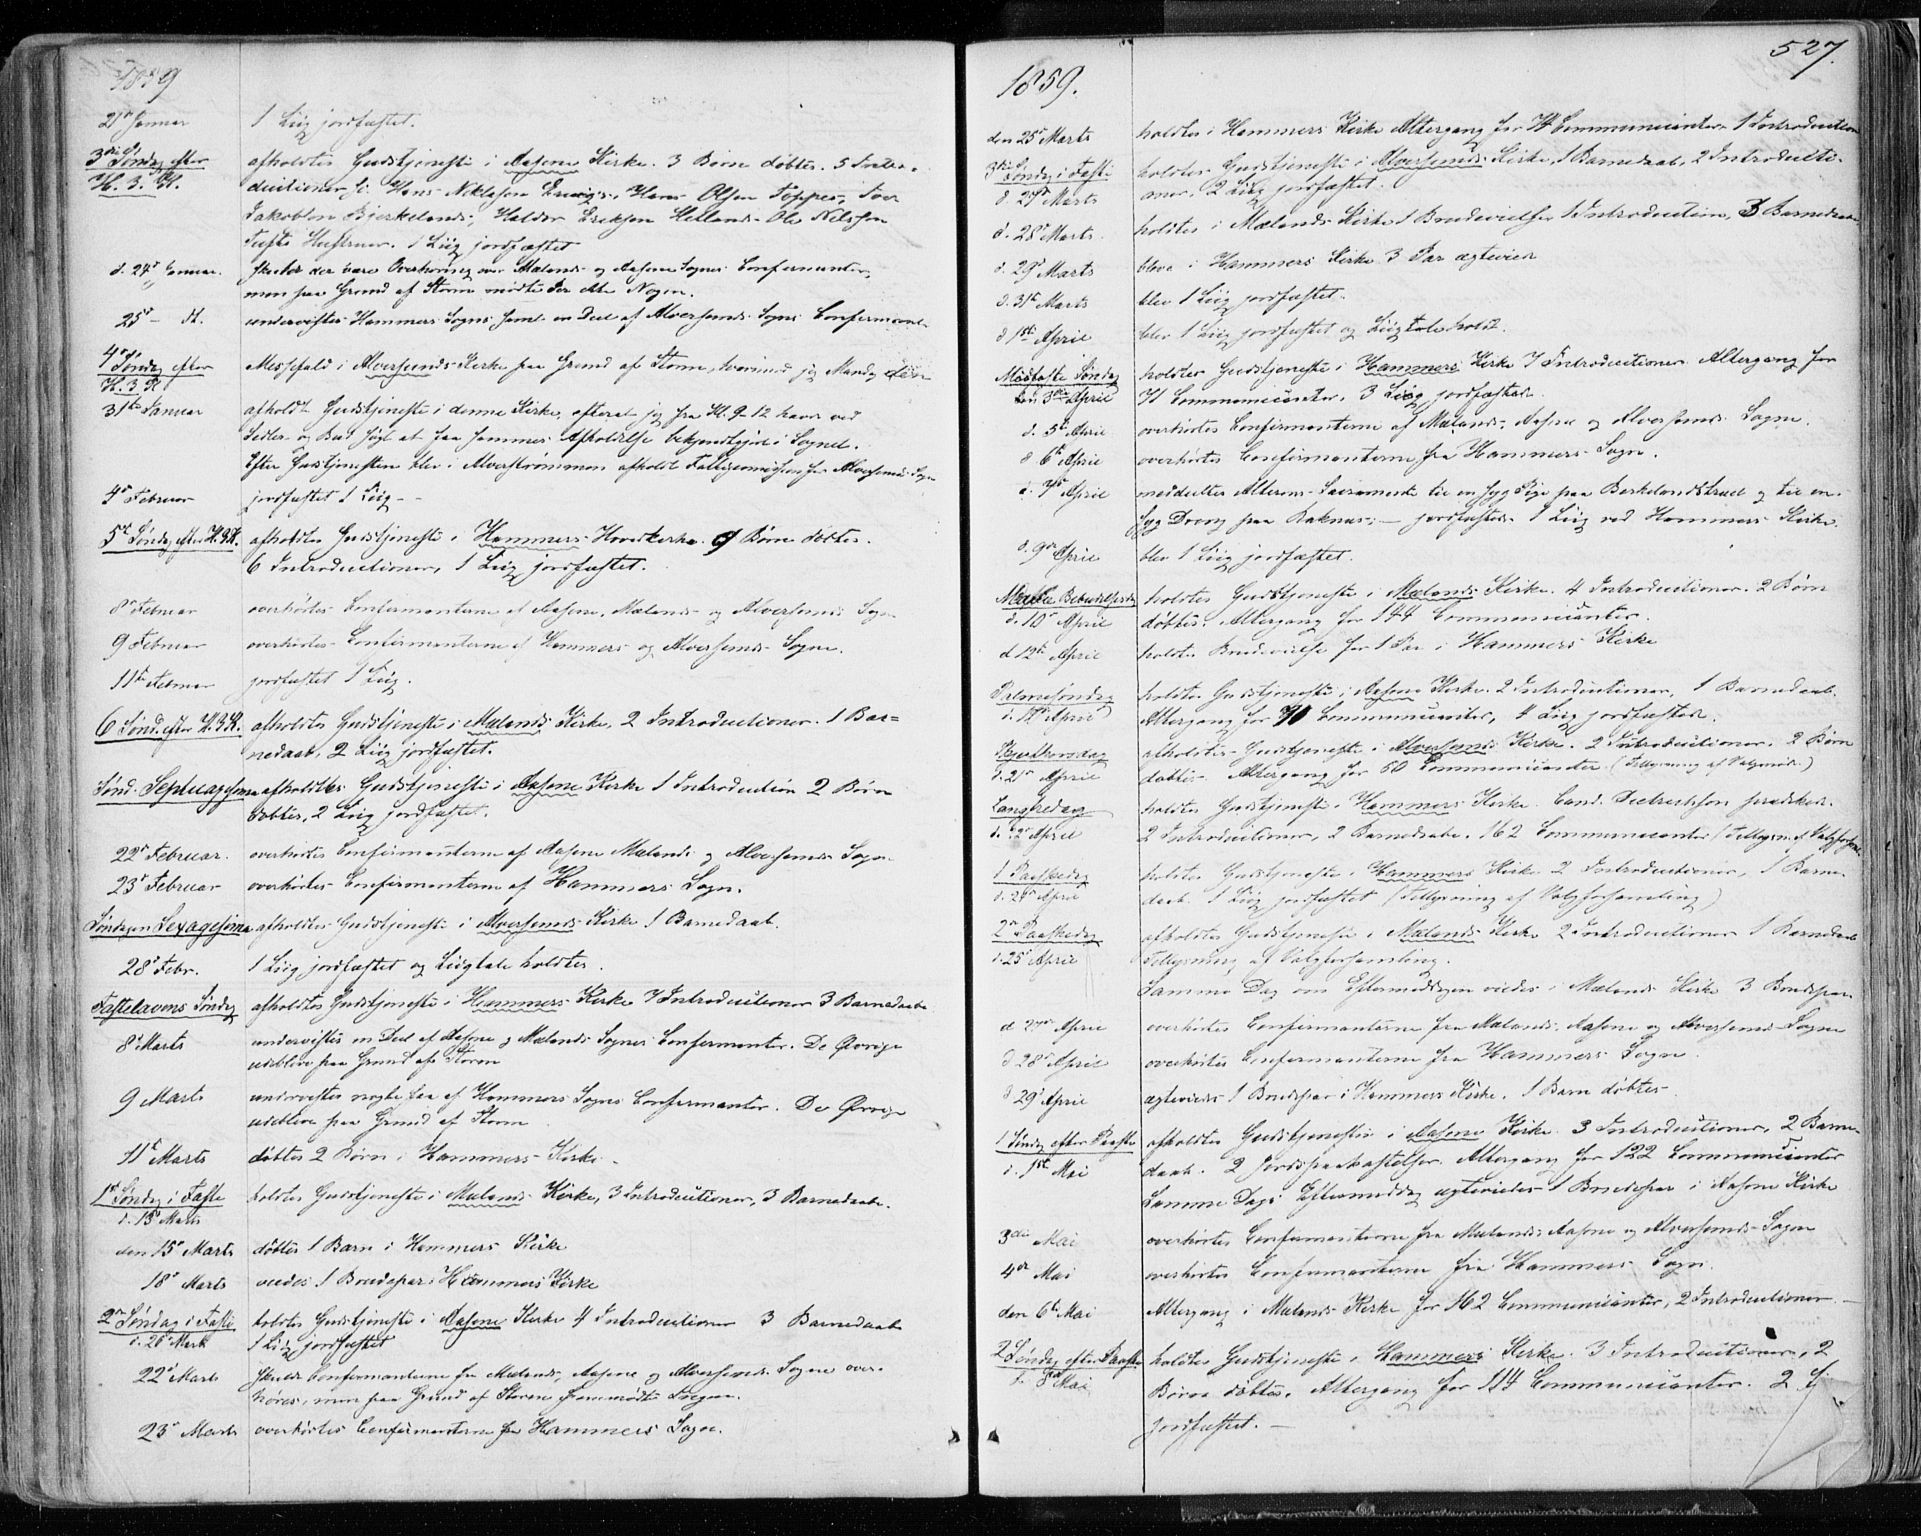 1859
21d Januar 1 Liig jordfæstet.
3die Søndag efter H. 3. K. afholdtes Gudstjeneste i Aasene Kirke. 3 Børn døbtes. 5 Intro-
ductioner fr. Hans Niklasen Hans Olsen Toppe, Iver
Jakobsen Bjerkeland, Haldor Eriksen Helland, Ole Nilssen
Tufte Hustruer. 1 Liig jordfæstet
d. 24d Januar. skulde der være Overhøring over Mælands og Aasene Sognes Confirmanter,
men paa Grund af Storm mødte der ikke Nogen.
25d - dt. undervistes Hammers Sogns samt en Deel af Alversunds Sogns Confirmanter
4d Søndag efter H. 3 K Messefald i Alversunds Kirke paa Grund af Storm, hvorimod jeg Mandag den
31te Januar afholdt Gudstjeneste i denne Kirke, efterat jeg fra Kl. 9-12 havde ved
Sedler og Bud søgt at faa sammes Afholdelse bekjendtgjort i Sognet.
Efter Gudstjenesten blev i Alverstrømmen afholdt Fattigcommission for Alversunds Sogn
4d Februar jordfæstet 1 Liig - -
5te Søndag efter H. 3 K. afholdtes Gudstjeneste i Hammers Hovedkirke. 9 Børn døbtes.
6 Introductioner, 1 Liig jordfæstet.
8d Februar overhørtes Confirmanterne af Aasene, Mælands og Alversunds Sogn
9 Februar overhørtes Confirmanterne af Hammers og Alversunds Sogne.
11te Februar jordfæstet 1 Liig.
6 Sønd. efter H. 3 K. afholdtes Gudstjeneste i Mælands Kirke, 2 Introductioner. 1 Bar=
nedaab, 2 Liig jordfæstet.
Sønd. Septuagesima afholdtes Gudstjeneste i Aasene Kirke 1 Introduction 2 Børn
døbtes, 2 Liig jordfæstet.
22d Februar. overhørtes Confirmanterne af Aasene Mælands og Alversunds Sogn
23d Februar overhørtes Confirmanterne af Hammers Sogn.
Søndagen Sexagesima afholdtes Gudstjeneste i Alversunds Kirke 1 Barnedaab.
28d Febr. 1 Liig jordfæstet og Liigtale holdtes.
Fastelavens Søndag afholdtes Gudstjeneste i Hammers Kirke 7 Introductioner 3 Barnedaabe
8d Marts undervistes en Deel af Aasene og Mælands Sognes Confirmanter. De Øvrige
udebleve paa Grund af Storm
9 Marts undervistes nogle faa af Hammers Sogns Confirmanter. De Øvrige
udebleve paa Grund af Storm
11te Marts døbtes 2 Børn i Hammers Kirke -
1ste Søndag i Faste d. 13d Marts holdtes Gudstjeneste i Mælands Kirke, 3 Introductioner, 3 Barnedaabe.
den 15d Marts døbtes 1 Barn i Hammers Kirke
18d Marts viedes 1 Brudepar i Hammers Kirke
2n Søndag i Faste d. 20d Marts holdtes Gudstjeneste i Aasene Kirke 4 Introductioner 3 Barnedaabe
1 Liig jordfæstet
22d Marts skulde Confirmanterne fra Mælands, Aasene og Alversunds Sogne over-
høres, men paa Grund af Storm fremmødte Ingen.
23d Marts overhørtes Confirmanterne fra Hammers Sogn.
527.
1859.
den 25d Marts holdtes i Hammers Kirke Altergang for Communicanter 1 Introduction
3die Søndag i Faste d. 27d Marts holdtes Gudstjeneste i Alversunds Kirke, 1 Barnedaab, 2 Introductio-
ner. 2 Liig jordfæstet.
d. 28d Marts. holdtes i Mælands Kirke 1 Brudevielse 1 Introduction, 3 Barnedaabe
d. 29d Marts bleve i Hammers Kirke 3 Par ægteviede
d. 31te Marts blev 1 Liig jordfæstet.
d 1ste April blev 1 Liig jordfæstet og Liigtale holdt.
Midfaste Søndag den 3die April holdtes Gudstjeneste i Hammers Kirke 7 Introductioner Altergang for
71 Communicanter, 3 Liig jordfæstede.
d. 5te April overhørtes Confirmanterne af Mælands, Aasene og Alversunds Sogne.
d 6te April overhørtes Confirmanterne fra Hammers Sogn.
d. 7de April meddeeltes Alterens Sacramente til en syg Pige paa Birkelandstræet og til en
syg Dreng paa Raknes; - jordfæstedes 1 Liig ved Hammers Kirke.
d. 9de April blev 1 Liig jordfæstet.
Mariæ Bebudelsesdag d. 10d April holdtes Gudstjeneste i Mælands Kirke. 4 Introductioner. 2 Børn
døbtes. Altergang for 144 Communicanter.
d 12te April holdtes Brudevielse for 1 Par i Hammers Kirke
Palmesøndag d. 17de April holdtes Gudstjeneste i Aasene Kirke. 2 Introductioner, 1 Barnedaab.
Altergang for 70 Communicanter, 4 Liig jordfæstede.
Skjærthorsdag d. 21d April afholdtes Gudstjeneste i Alversunds Kirke. 2 Introductioner. 2 Børn
døbtes. Altergang for 60 Communicanter (Tillysning af Valgmøde.)
Langfredag d. 22d April holdtes Gudstjeneste i Hammers Kirke. Cand. Diedrichson prædiked.
2 Introductioner, 2 Barnedaabe. 162 Communicanter (Tillysn. af Valgforsaml.
1 Paaskedag d. 24d April holdtes Gudstjeneste i Hammers Kirke 2 Introductioner, 1 Barne-
daab. 1 Liig jordfæstet (Tillysning af Valgforsamling)
2n Paaskedag d. 25d April afholdtes Gudstjeneste i Mælands Kirke 2 Introductioner 1 Barnedaab
Tillysning af Valgforsamling.
Samme Dag om Eftermiddagen viedes i Mælands Kirke 3 Brudepar.
d 27de April overhørtes Confirmanterne fra Mælands, Aasene og Alversunds Sogne
d 28d April overhørtes Confirmanterne fra Hammers Sogn.
d 29d April ægteviedes 1 Brudepar i Hammers Kirke. 1 Barn døbtes
1 Søndag efter Paaske d. 1ste Mai afholdtes Gudstjeneste i Aasene Kirke. 3 Introductioner, 2 Barne-
daab. 2 Jordspaakastelser. Altergang for 122 Communicanter
Samme Dags Eftermiddag ægteviedes 1 Brudepar i Aasene Kirke
3die Mai overhørtes Confirmanterne fra Mælands, Aasene og Alversunds Sogne
4de Mai overhørtes Confirmanterne fra Hammers Sogn.
den 6te Mai Altergang i Mælands Kirke for 162 Communicanter, 2 Introductioner -
2 Søndag efter Paaske d. 8de Mai holdtes Gudstjeneste i Hammers Kirke. 3 Introductioner, 2
Børn døbtes. Altergang for 114 Communicanter. 2
jordfæstet. -